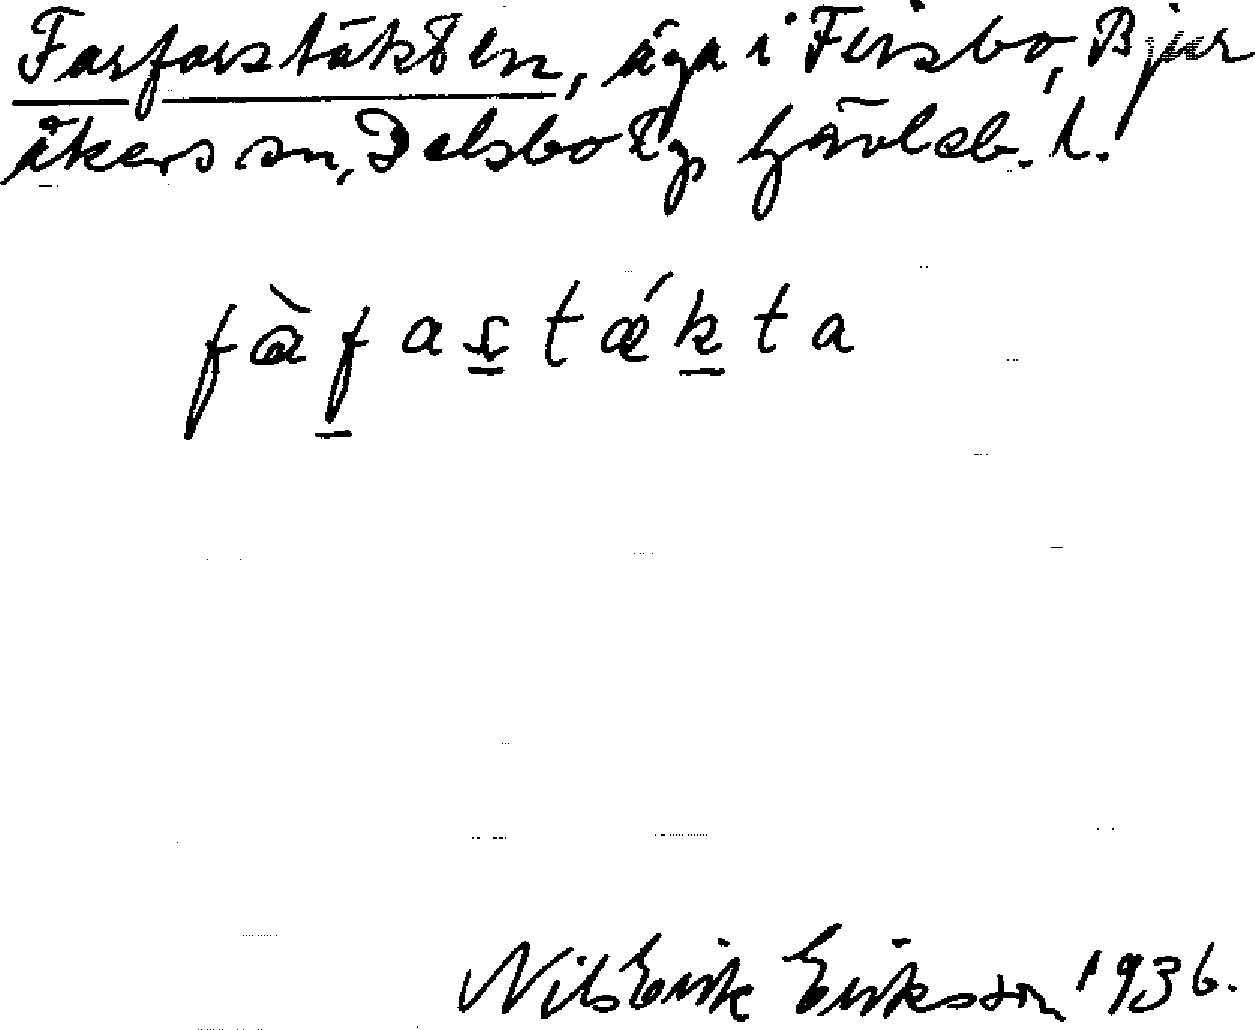 Farfarstäkten, äga i Firsbo, Bjur
åkers sn, Delsbo tg, Gävleb. l.
fàfastǽkta
Nils Erik Eriksson 1936.